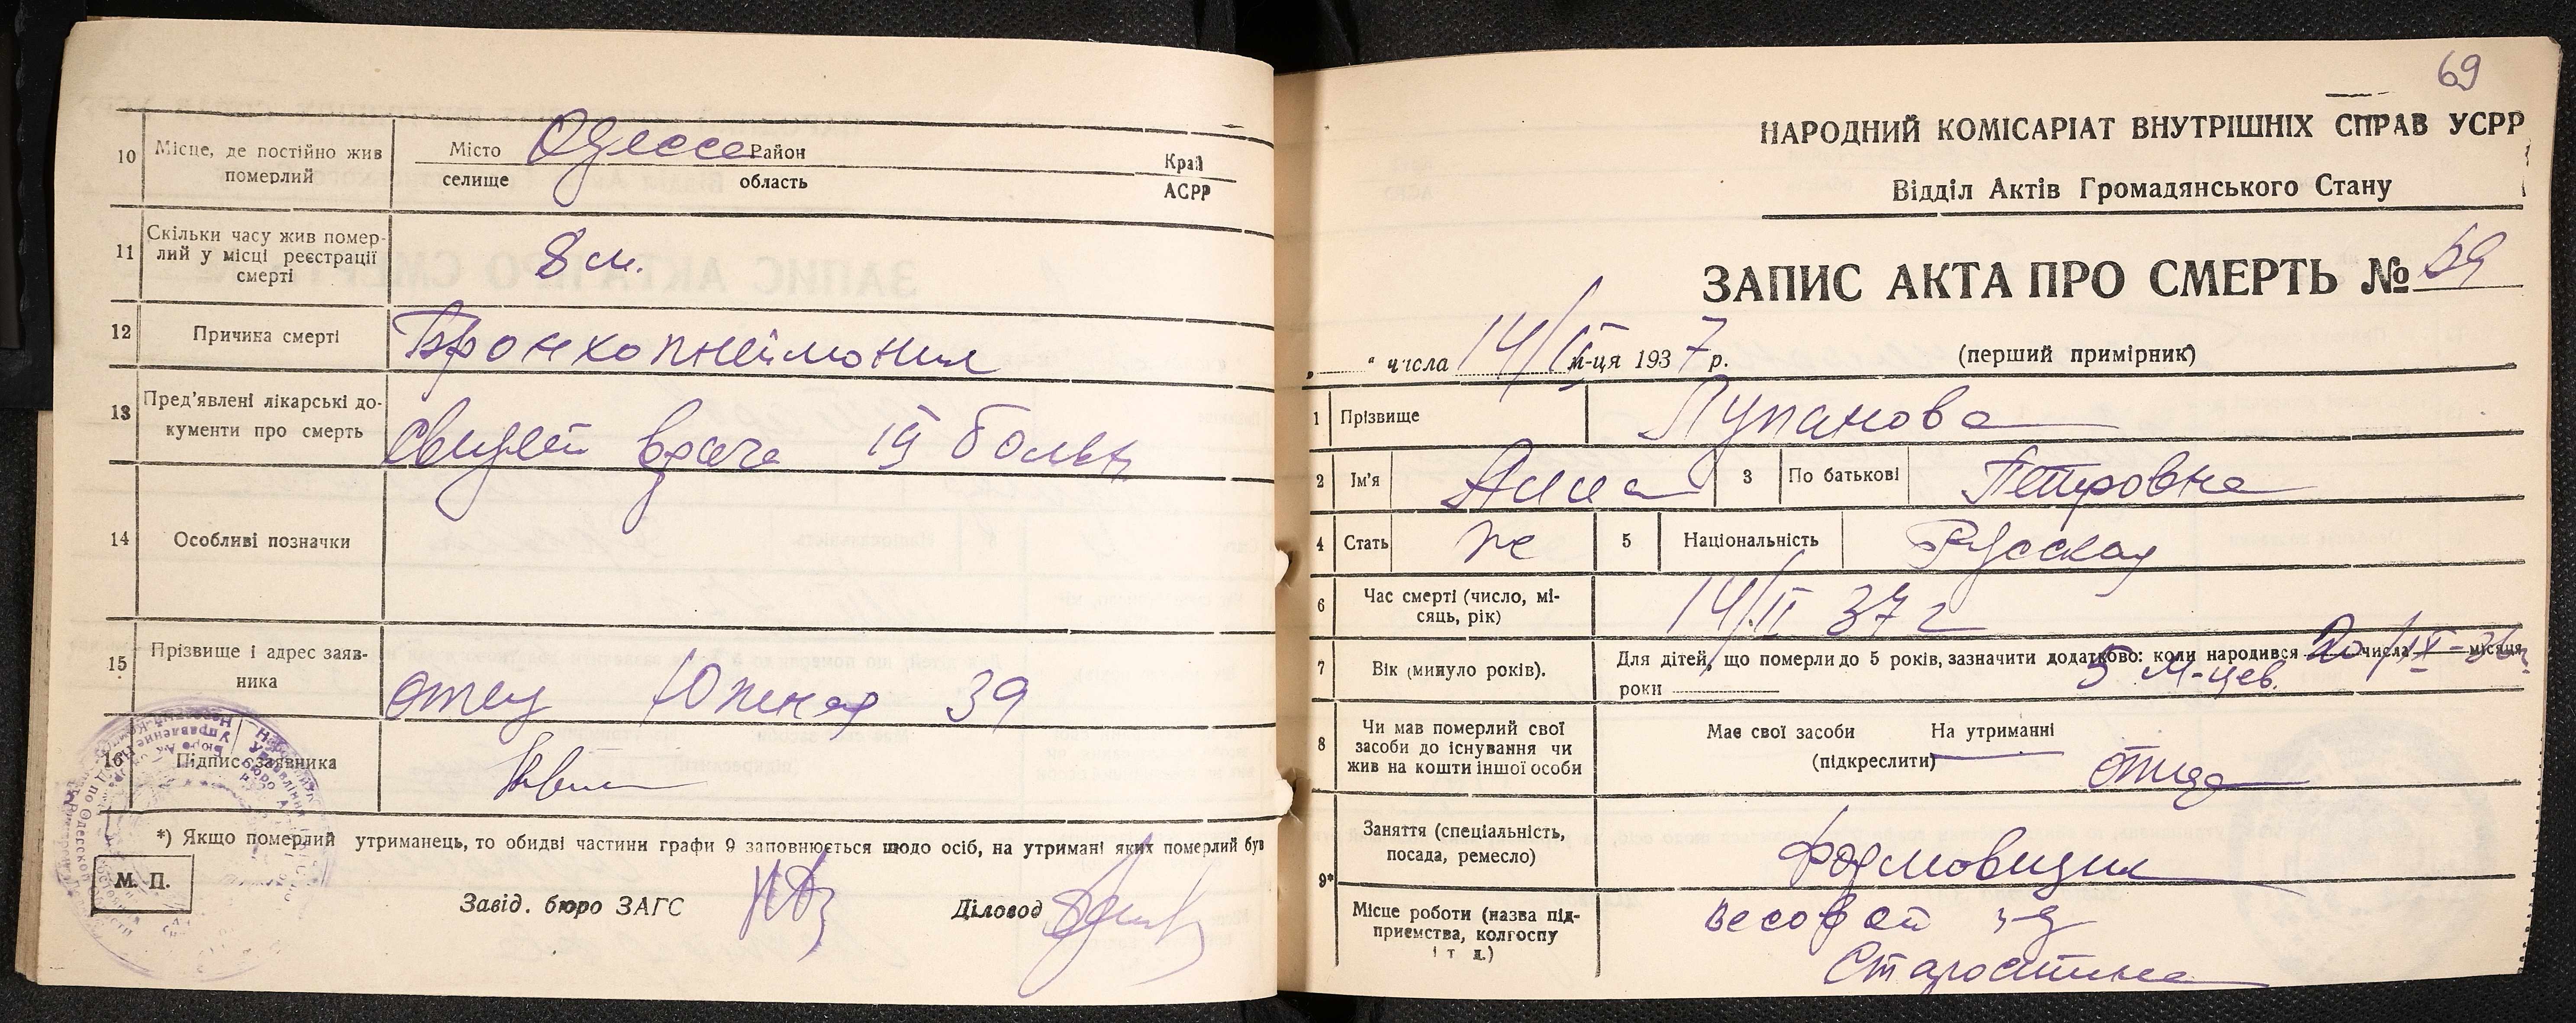 10 Місце, де постійно жив померлий
Місто Одесса Район Край
селище область АСРР
11 Скільки часу жив помер-
лий у місці реєстрації
смерті
8 м.
12 Причина смерті Бронхопнеймония
13 Пред'явлені лікарські до-
кументи про смерть
свидет врача больн
14 Особливі позначки
15 Прізвище і адрес заяв-
ника
отец Южная 39
16 Підпис заявника
*) Якщо померлий утриманець, то обидві частини графи 9 заповнюється щодо осіб, на утримані яких померлий був
М. П.
Завід. бюро ЗАГС Діловод
69
НАРОДНИЙ КОМІСАРІАТ ВНУТРІШНІХ СПРАВ УСРР
Відділ Актів Громадянського Стану
ЗАПИС АКТА ПРО СМЕРТЬ № 69
„ “ числа 14/II м-ця 1937 р. (перший примірник)
1 Прізвище Лупанова
2 Ім'я Алла 3 По батькові Петровна
4 Стать ж 5 Національність Русская
6 Час смерті (число, мі-
сяць, рік)
14/II 37 г
7 Вік (минуло років).
Для дітей, що померли до 5 років, зазначити додатково: коли народився 20/IX-36 числа місяця
роки 5 м-цев.
8 Чи мав померлий свої
засоби до існування чи
жив на кошти іншої особи
Має свої засоби На утриманні
(підкреслити)
отца
9* Заняття (спеціальність,
посада, ремесло)
формовщик
Місце роботи (назва під-
приємства, колгоспу
і т д.)
весов з-д
Старостина